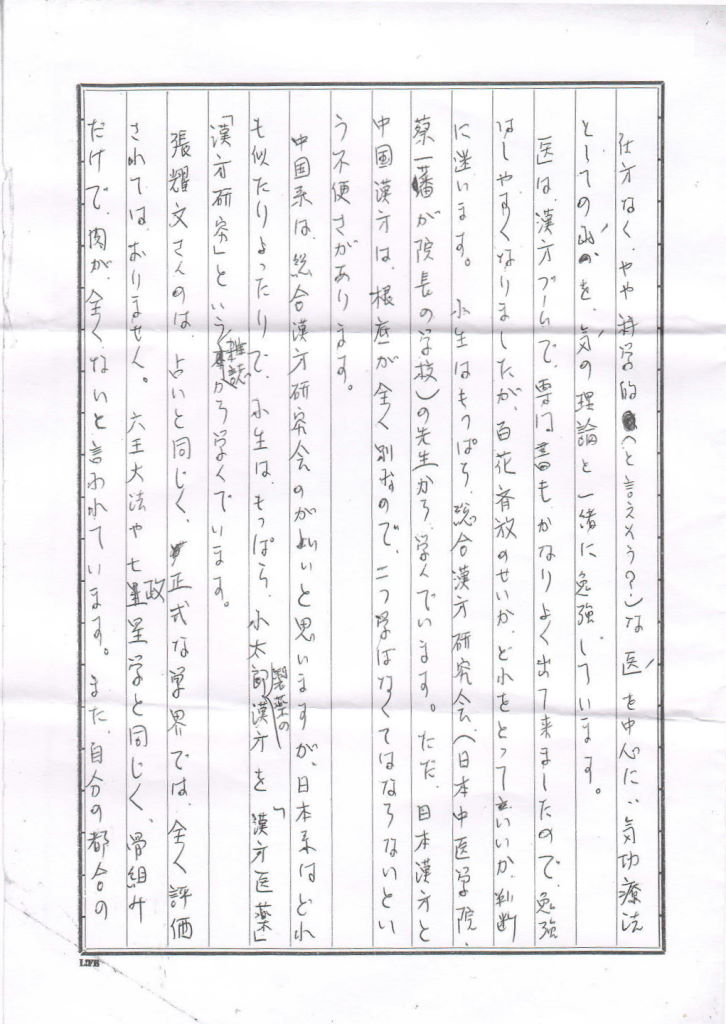 仕方なく、やや科学的(と言えそう?)な〝医〟を中心に〝気功療法
としての〝山〟を、〝気〟の理論と一緒に勉強しています。
医は、漢方ブームで、専門書もかなりよく出て来ましたので、勉強
はしやすくなりましたが、百花斉放のせいか、どれをとっていいか、判断
に迷います。小生はもっぱら、総合漢方研究会、(日本中医学院、
蔡一藩が院長の学校)の先生から、学んでいます。ただ、日本漢方と
中国漢方は、根底が全く別なので、二つ学ばなくてはならないとい
う不便さがあります。
中国系は、総合漢方研究会のがよいと思いますが、日本系はどれ
も似たりよったりで、小生は、もっぱら、小太郎製薬の漢方を「漢方医薬」
「漢方研究」という雑誌から学んでいます。
張耀文さんのは、占いと同じく、正式な学界では、全く評価
されてはおりません。六壬大法や七政星学と同じく、骨組み
だけで、肉が、全くないと言われています。また、自分の都合の
LIFE